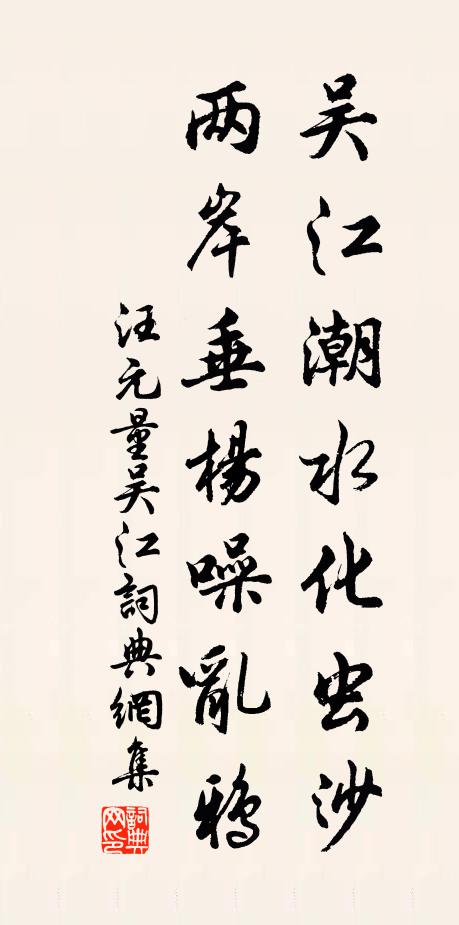 吴江潮水化虫沙
两岸垂杨噪亂鸦
汪元量吴江詞典網集
詞典网印